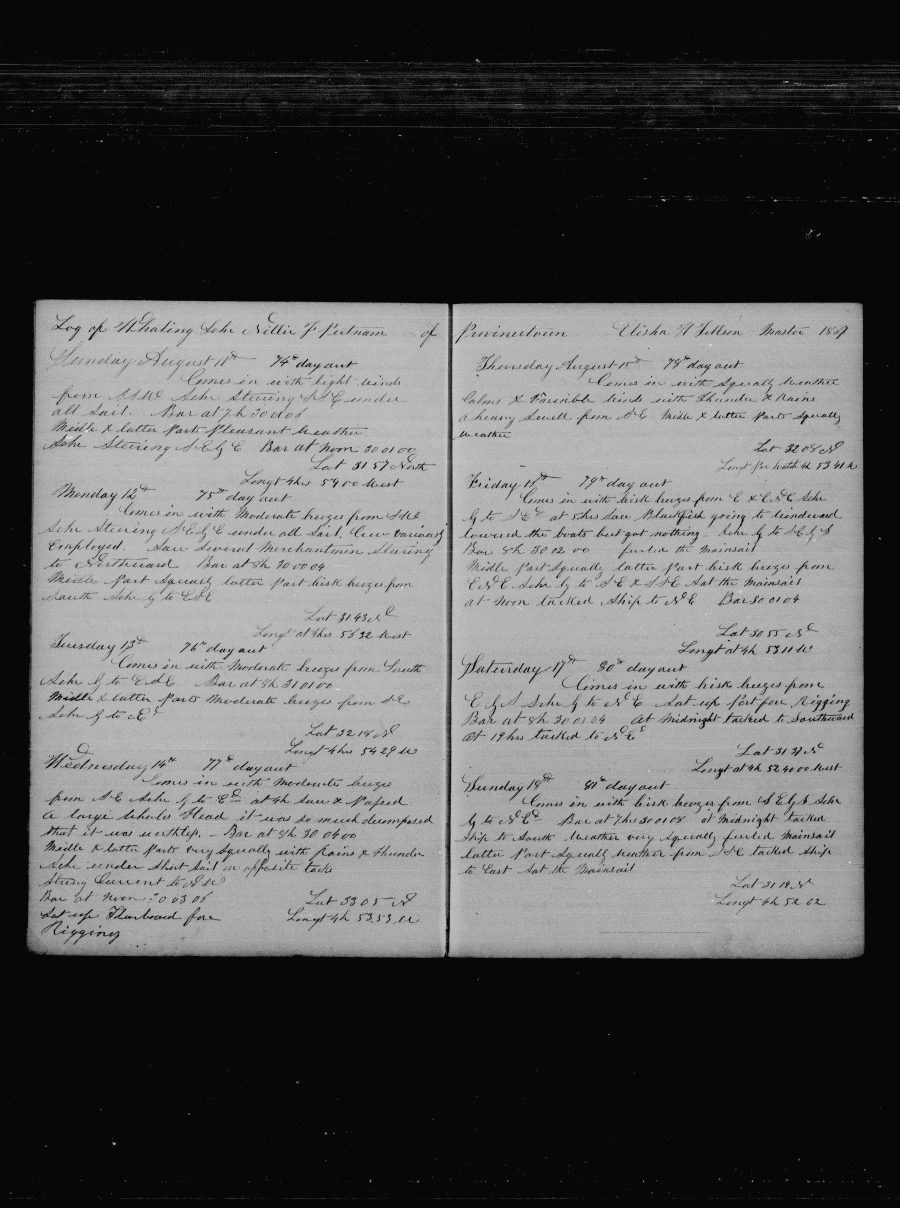 Log of Whaling Schr Nellie F Putnam of
Sunday August 11th 74th day out
Comes in with light winds
from SSW Schr Steering SSE under
all sail. Bar at 7h 30 00 06
Middle & latter Parts Pleasant weather
Schr Steering SE by E Bar at Noon 30 01 00
Lat 31 57 North
Longt 4hs 59 00 West
Monday 12th 75th day out
Comes in with Moderate breezes from SW
Schr Steering SE by E under all sail. Crew variously
Employed. Saw several Merchantmen Steering
to Northward Bar at 8h 30 00 04
Middle Part Squally latter Part brisk breezes from
South Schr by to ESE
Lat 31 43 N
Longt at 4hrs 56 32 West
Tuesday 13th 76th day out
Comes in with Moderate breezes from South
Schr by to ESE Bar at 8h 31 01 00
Middle & latter Parts Moderate breezes from SE
Schr by to Ed
Lat 32 18 N
Longt 4 hrs 54 29 W
Wednesday 14th 77th day out
Comes in with Moderate breezes
from SE Schr by to Ed at 4h saw & Passed
a large whales Head it was so much decomposed
that it was worthless. Bar at 8h 30 04 00
Middle & latter Parts very Squally with Rains & thunder
Schr under short sail on opposite tacks
Strong Current to
Bar at Noon 30 03 06 Lat 33 05 N
Set up Starboard fore Longt 4h 53,53, W
Rigging
Provincetown Elisha H Tillson Master 1867
Thursday August 15th 78th day out
Comes in with Squally weather
Calms & Variable winds with thunder & Rains
a heavy Swell from SE Middle & latter Parts Squally
weather
Lat 32 08 N
Longt Pr Watch 4h 53 41 W
Friday 16th 79th day out
Comes in with brisk breezes from E & ENE Schr
by to SEd at 5hrs saw Blackfish going to windward
lowered the boats but got nothing. Schr by to SE by S
Bar 8h 30 02 00 furled the Mainsail
Middle Part Squally latter Part brisk breezes from
ENE Schr by to SE & SSE Sat the Mainsail
at Noon tacked Ship to NE Bar 30 01 04
Lat 30 55 N
Longt at 4h 53 11 W
Saturday 17th 80th day out
Comes in with brisk breezes from
E by S Schr by to NE Sat up Port fore Rigging
Bar at 8h 30 03 04 at Midnight tacked to Southward
at 19hrs tacked to NEd
Lat 31 27 N
Longt at 4h 52 40 00 West
Sunday 18th 81st day out
Comes in with brisk breezes from SE by S Schr
by to NEd Bar at 7hrs 30 01 08 at Midnight tacked
Ship to South Weather very Squally furled Mainsail
latter Part Squally weather from SSE tacked Ship
to East Sat the Mainsail
Lat 31 19 N
Longt 4h 52 02